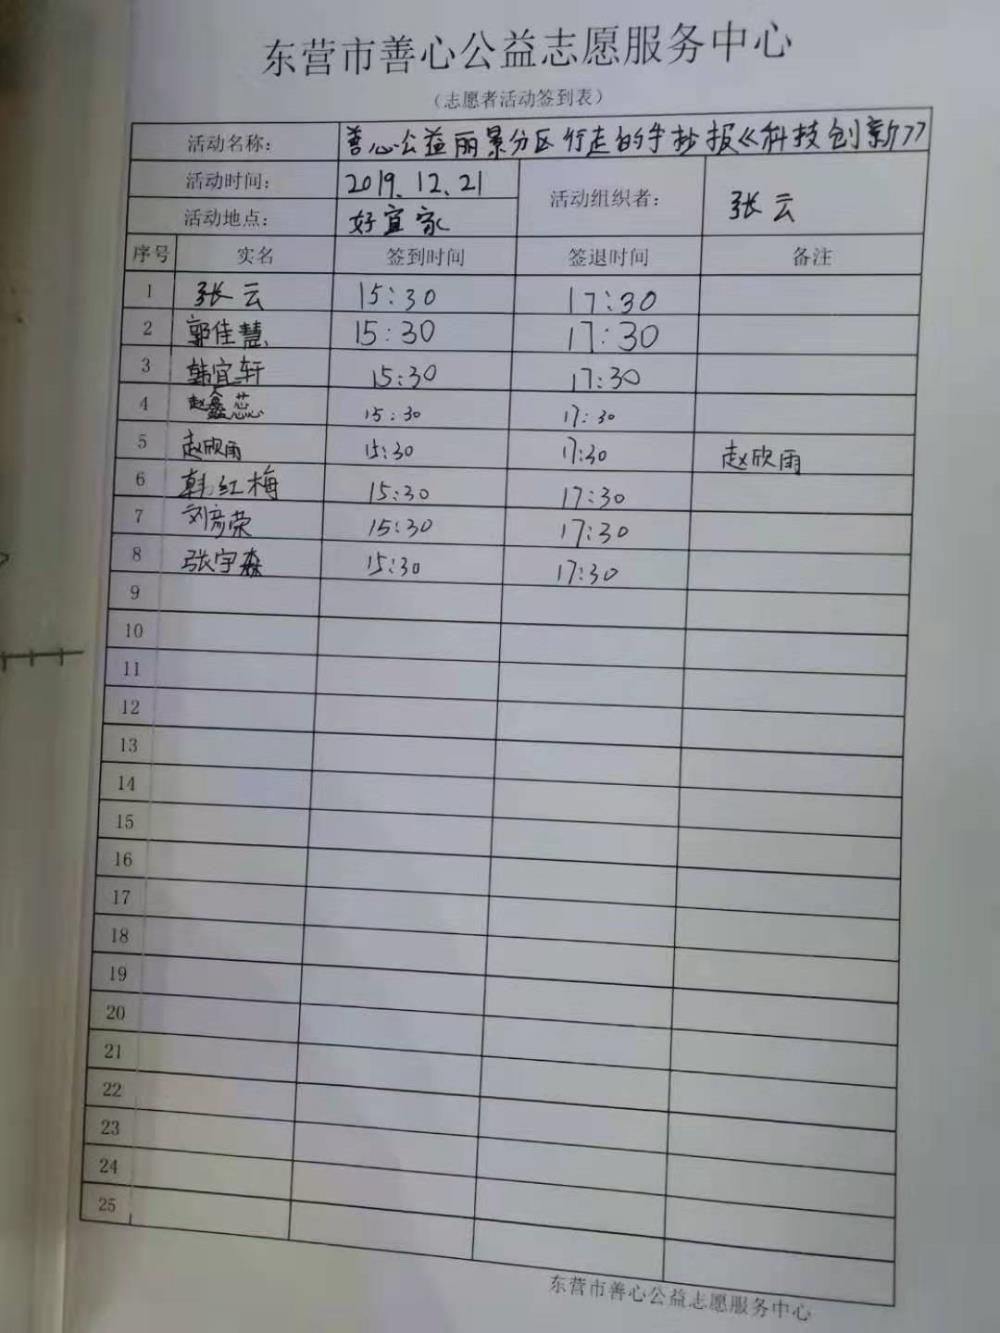 东营市善心公益志愿服务中心
（志愿者活动签到表）
活动名称： 善心公益丽景分区行走的手抄报《科技创新》
活动时间： 2019.12.21 活动组织者： 张云
活动地点： 好宜家
序号 实名 签到时间 签退时间 备注
1 张云 15:30 17:30
2 郭佳慧 15:30 17:30
3 韩宜轩 15:30 17:30
4 赵鑫蕊 15:30 17:30
5 赵欣雨 15:30 17:30 赵欣雨
6 韩红梅 15:30 17:30
7 刘彦荣 15:30 17:30
8 张宇森 15:30 17:30
9
10
11
12
13
14
15
16
17
18
19
20
21
22
23
24
25
东营市善心公益志愿服务中心